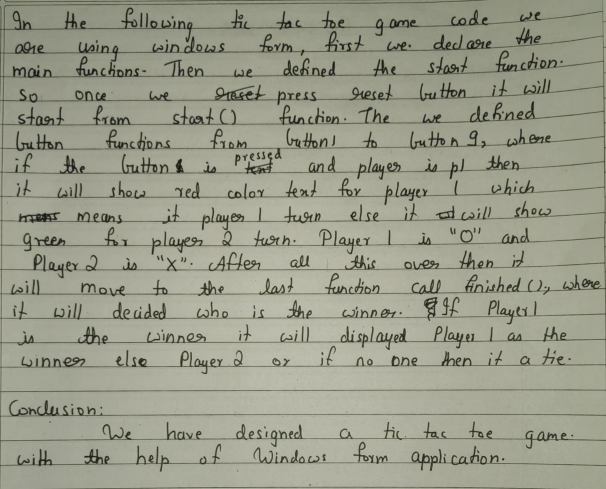 In the following tic tac toe game code we
are using windows form, first we. declare the
main functions. Then we defined the start function.
So once we reset press reset button it will
start from start() function. The we defined
button functions from button1 to button 9, where
if the button is pressed and player is p1 then
it will show red color text for player 1 which
means it player 1 turn else it will show
green for player 2 turn. Player 1 is "O" and
Player 2 is "X". After all this over then it
will move to the last function call finished(), where
it will decided who is the winner. If Player 1
is the winner it will displayed Player 1 as the
winner else Player 2 or if no one then it a tie.
Conclusion:
We have designed a tic tac toe game.
with the help of Windows form application.